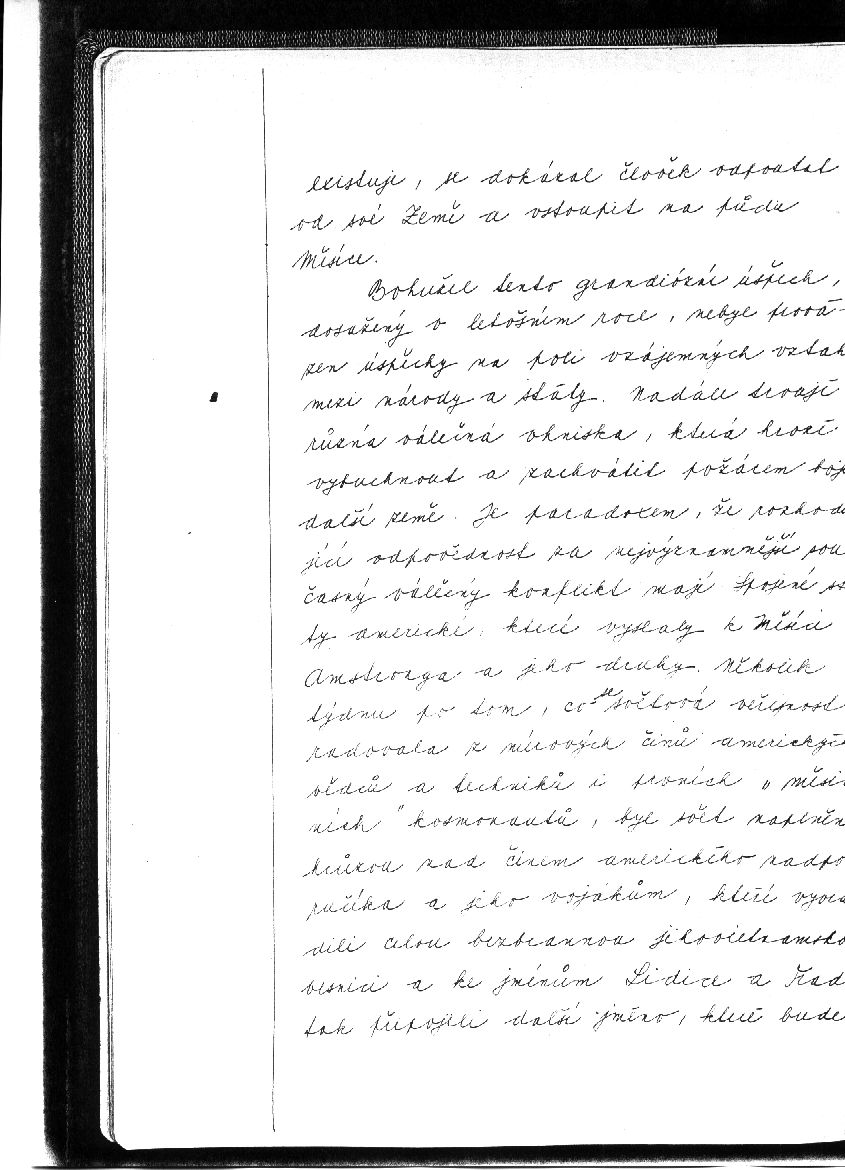 existuje, se dokázal člověk odpoutat
od své Země a vstoupit na půdu
Měsíce.
Bohužel tento grandiózní úspěch,
dosažený v letošním roce, nebyl prová-
zen úspěchy na poli vzájemných vztah
mezi národy a státy. Nadále trvají
různá válečná ohniska, která hrozí
vybuchnout a zachvátit požárem boj
další země. Je paradoxem, že rozhodu
jící odpovědnost za nejvýznamnější sou
časný válečný konflikt mají Spojené st
ty americké, které vyslaly k Měsíci
Amstronga a jeho druhy. Několik
týdnu po tom, co se světová veřejnost
radovala z mírových činů americkýc
vědců a techniků i prvních „ měsíč
ních " kosmonautů, byl svět naplněn
hrůzou nad činem amerického nadpo
ručíka a jeho vojákům, kteří vyvra
dili celou bezbrannou jihovietnamsko
vesnici a ke jménům Lidice a Orad
tak připojili další jméno, které bude